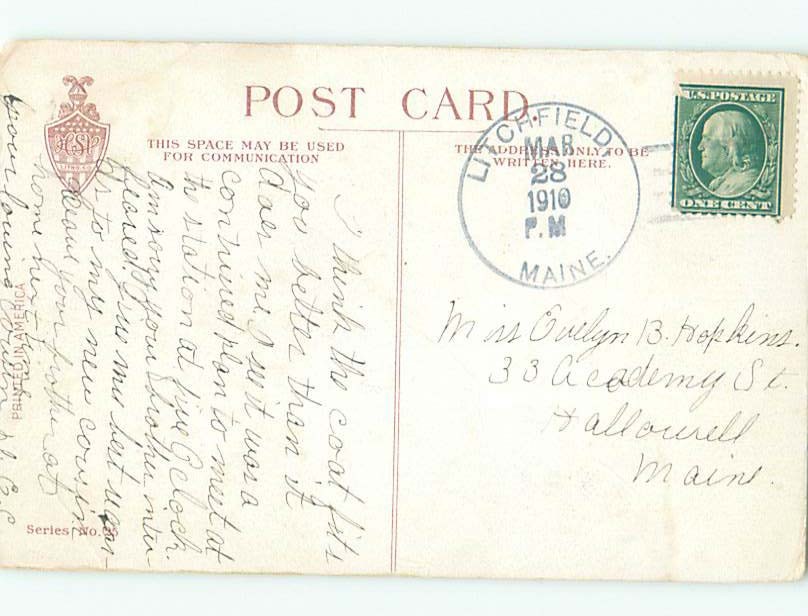 POST CARD.
THIS SPACE MAY BE USED
FOR COMMUNICATION
THE ADDRESS ONLY TO BE
WRITTEN HERE.
LITCHFIELD,
MAR
28
1910
P.M
MAINE.
U.S. POSTAGE
ONE CENT
Miss Evelyn B. Hopkins.
33 Academy St.
Hallowell
Maine.
I think the coat fits
you better than it
does me. I see it was a
contrived plan to meet at
the station at five O clock.
Am sorry you & brother inter-
feared. Give my best regar-
ds to my new cousin
your brother at
home next time
your loving cousin
PRINTED IN AMERICA
Series No.